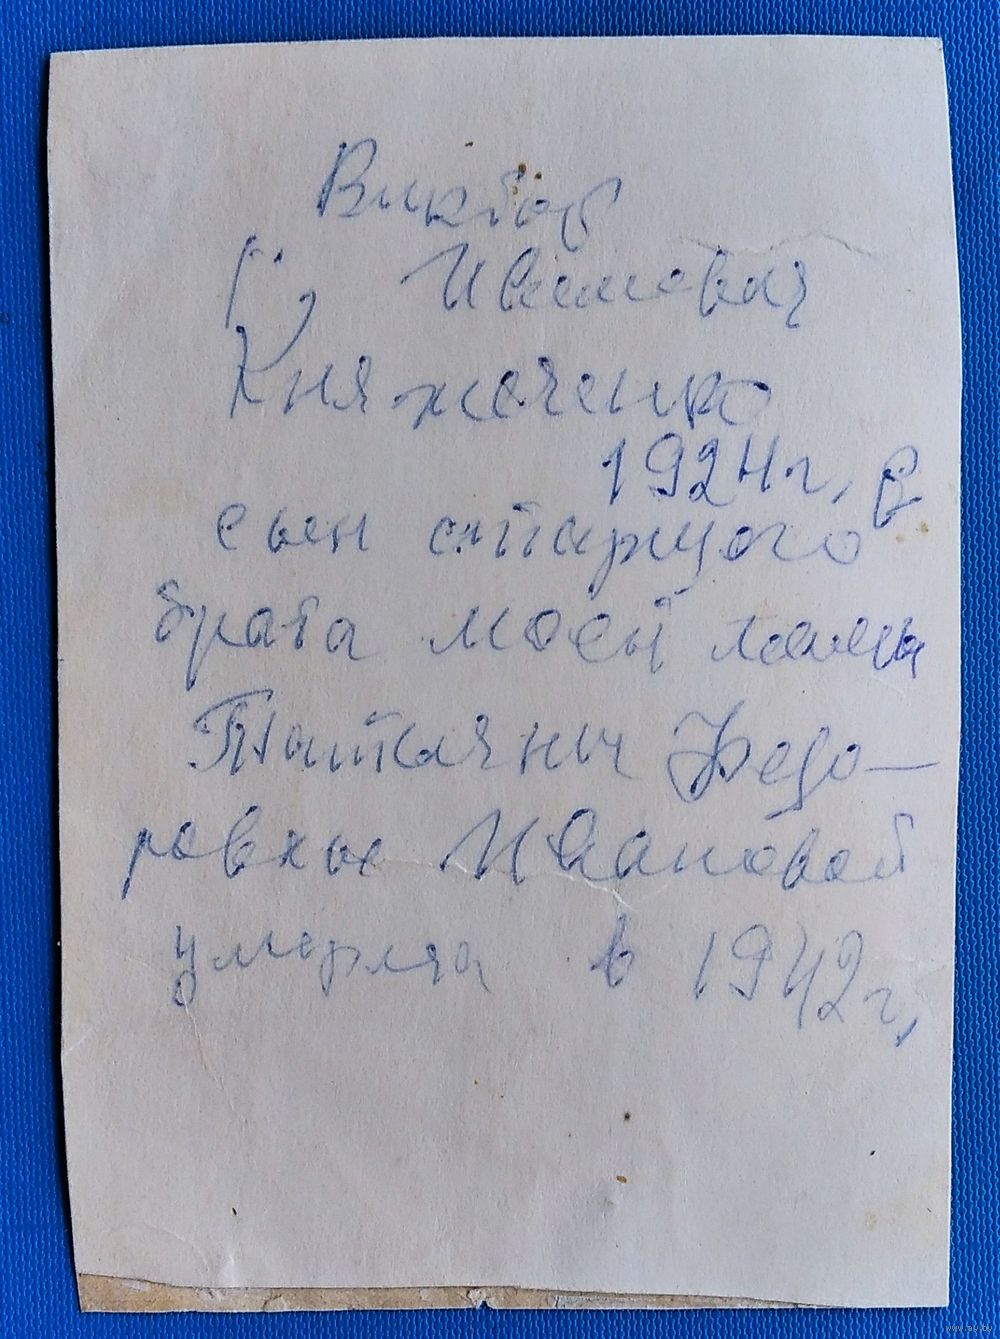 Виктор
Иванович
Княжеченко
1924 г. р
сын старшого
брата моей мамы
Татьяны Федо-
ровны Ивановой
умерла в 1942 г.
www.ay.by